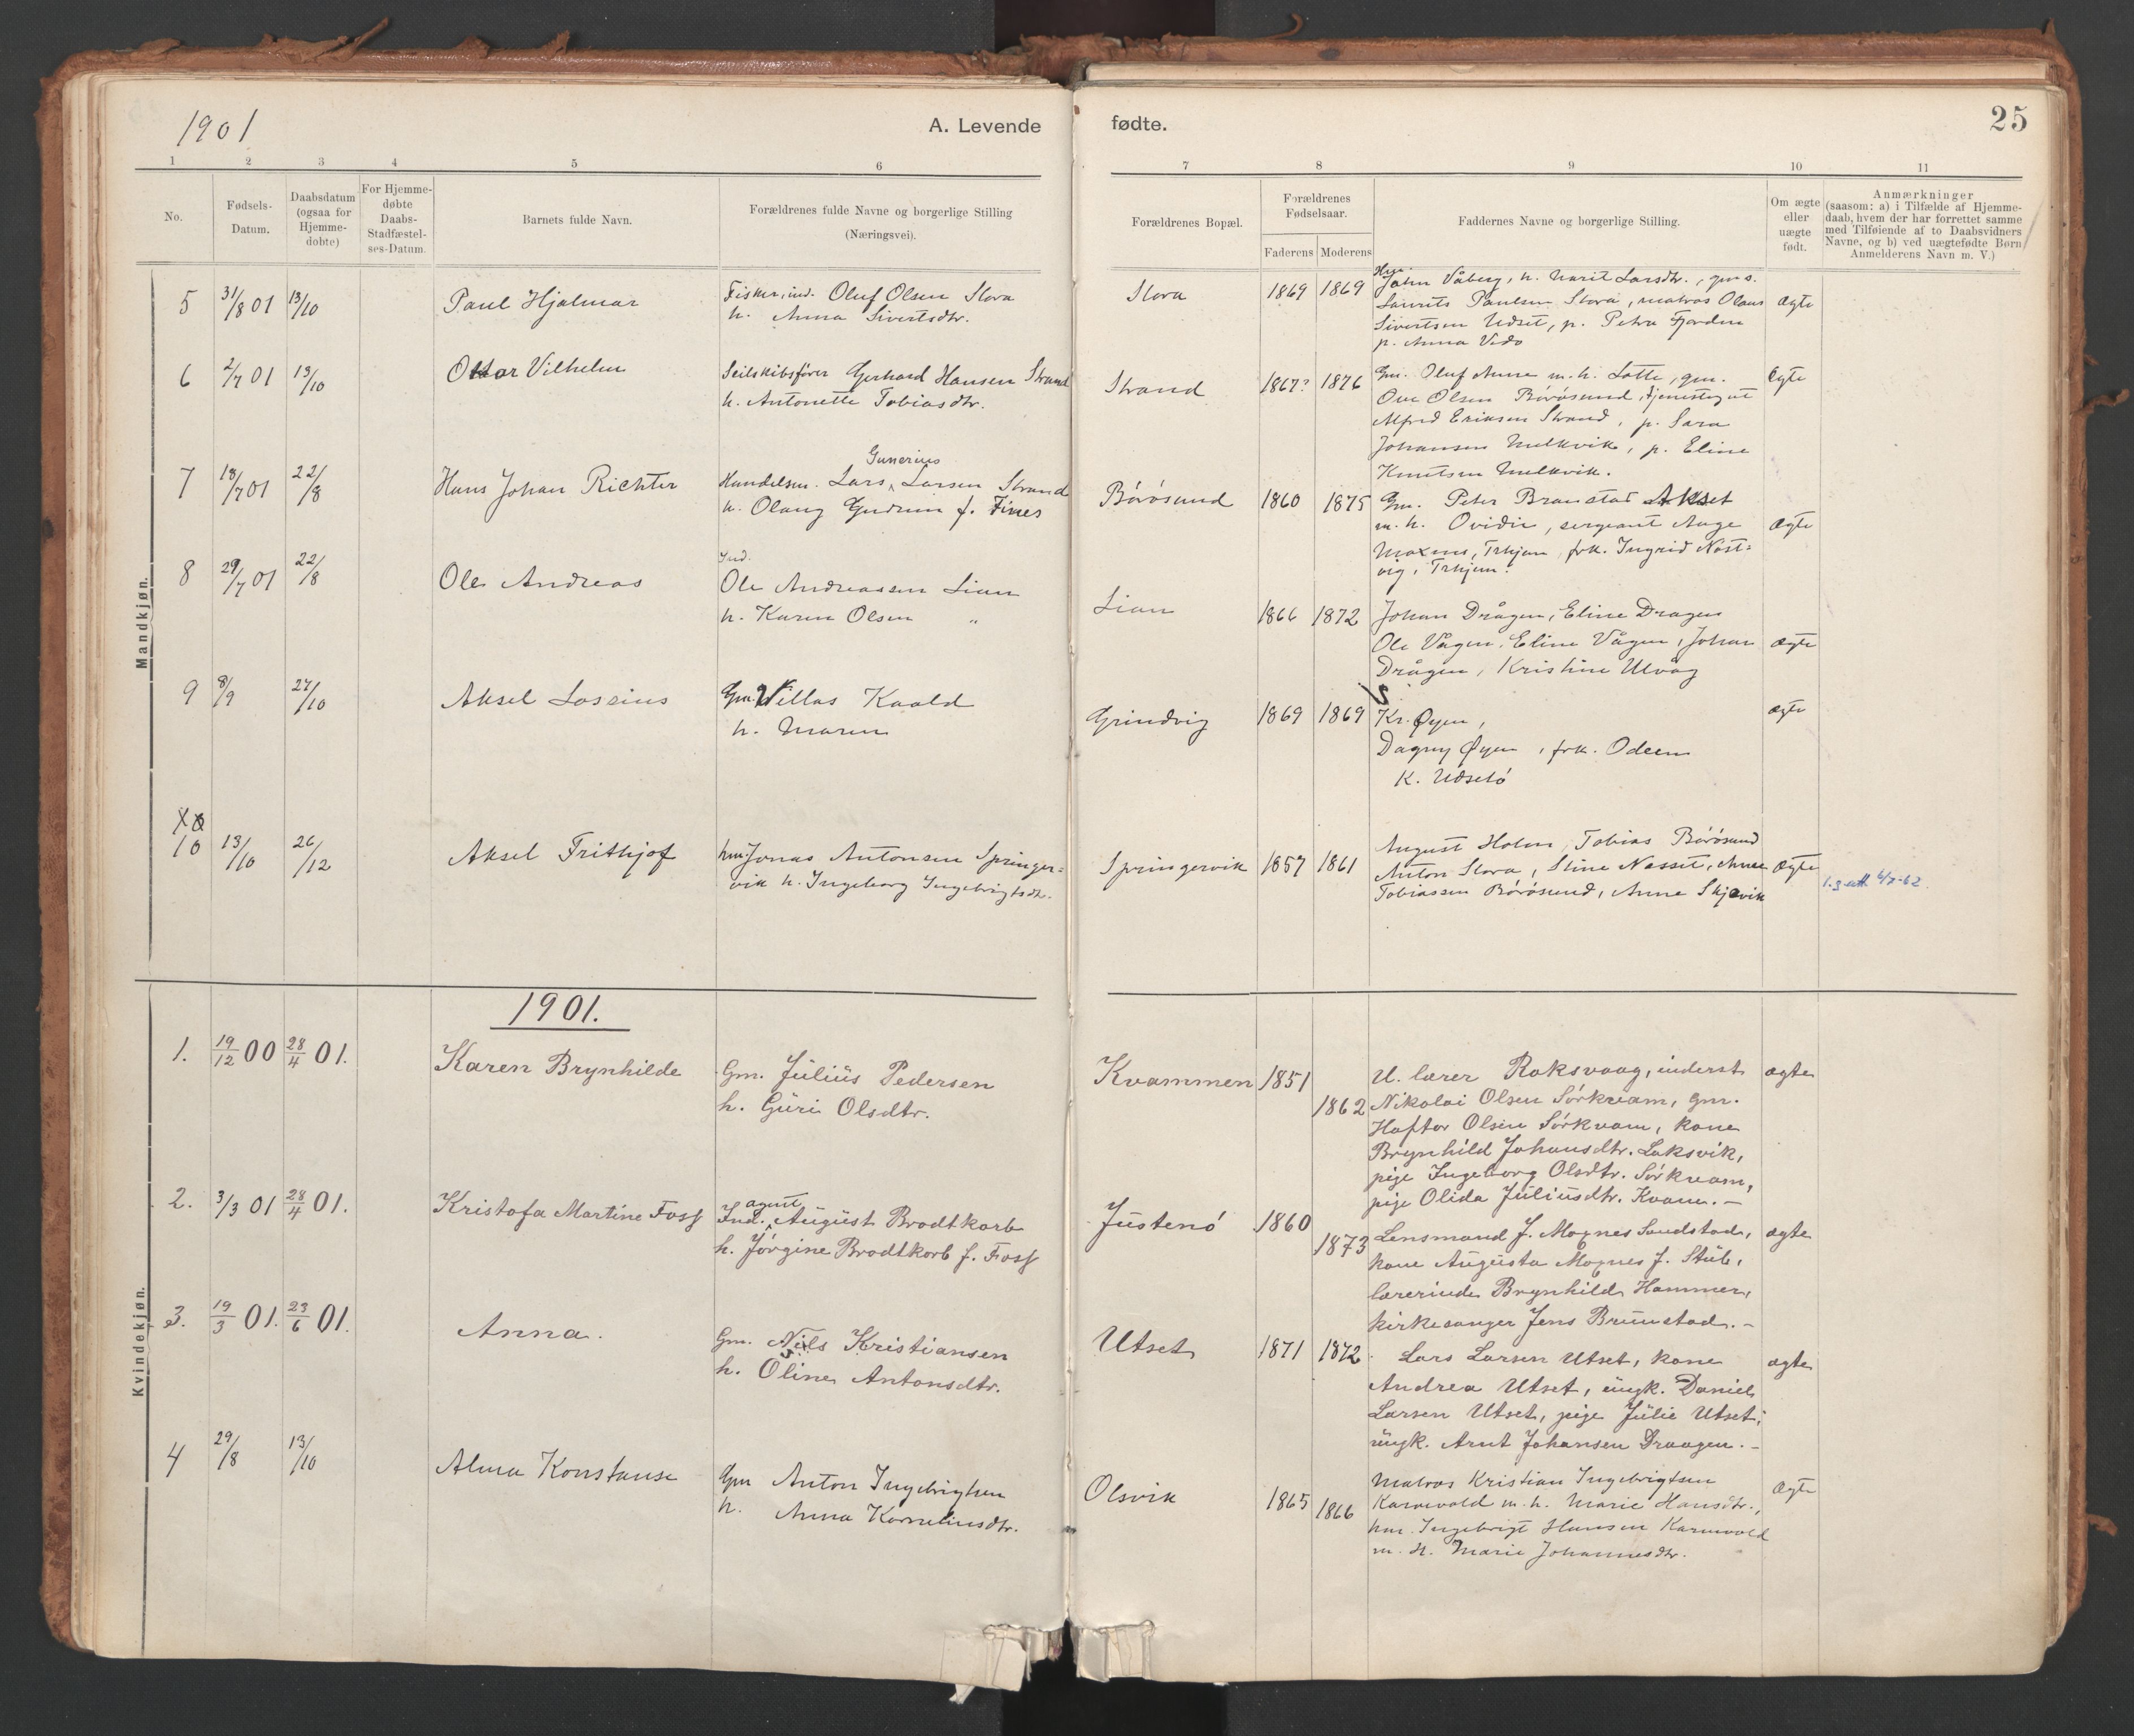 1901
A. Levende
fødte.
25
1 2 3 4 5 6
7 8 9 10 11
No.
Fødsels-
Datum.
Daabsdatum
(ogsaa for
Hjemme-
døbte)
For Hjemme-
døbte
Daabs-
Stadfæstel-
ses-Datum.
Barnets fulde Navn.
Forældrenes fulde Navne og borgerlige Stilling
(Næringsvei).
Forældrenes Bopæl.
Forældrenes
Fødselsaar.
Faderens Moderens
Faddernes Navne og borgerlige Stilling.
Om ægte
eller
uægte
født.
Anmærkninger
(saasom: a) i Tilfælde af Hjemme-
daab, hvem der har forrettet samme
med Tilføiende af to Daabsvidners
Navne, og b) ved uægtefødte Børn
Anmelderens Navn m. V.)
Mandkjøn.
5 31/8 01 13/10 Paul Hjalmar
Fisker, ind. Oluf Olsen Slora
h. Anna Sivertsdtr.
Slora 1869 1869
John Våberg, h. Marit Larsdtr., gm s.
Laurits Paulsen Slora, matros Olaus
Sivertsen Udset, p. Petra Fjorden
p. Anna Vedo
ægte
6 2/7 01 13/10 Ottar Vilhelm
Seilskibsfører Gerhard Hansen Strand
h. Antonette Tobiasdtr.
Strand 1867? 1876
Gm. Oluf Aune m. h. Lotte, gm.
Ove Olsen Börösund, tjenestegut
Alfred Eriksen Strand, p. Sara
Johansen Melkvik, p. Eline
Knutsen Melkvik.
Egte
7 18/7 01 22/8 Hans Johan Richter
Gunerius
Handelsm. Lars Larsen Strand
h. Olaug Gudrun f. Fines
Börösund 1860 1875
Gm. Peter Branstad Akset
m. h. Ovidie, sergeant Aage
Moxnes, Trhjem, frk. Ingrid Nöst=
vig, Trhjem.
ægte
8 29/7 01 22/8 Ole Andreas
Ind.
Ole Andreassen Lian
h. Karen Olsen "
Lian 1866 1872
Johan Drågen, Eline Dragen
Ole Vågen, Eline Vågen, Johan
Drågen, Kristine Ulvåg
ægte
9 8/9 27/10 Aksel Lossius
Gm. Villas Kaald
h. Maren
Grindvig 1869 1869
Kr. Øyen,
Dagny Øyen, frk. Odeen
K. Udsetö
ægte
10 13/10 26/12 Aksel Frithjof
hm. Jonas Antonsen Springer=
vik h. Ingeborg Ingebrigtsdtr.
Springervik 1857 1861
August Holm, Tobias Börösund
Anton Slora, Stine Nesset, Anne
Tobiassen Börösund, Anne Skjevik
Ægte
1901.
Kvindekjøn.
1. 19/12 00 28/4 01. Karen Brynhilde
Gm. Julius Pedersen
h. Guri Olsdtr.
Kvammen 1851
1862
U. lærer Roksvaag, inderst
Nikolai Olsen Sörkvam, gm.
Haftor Olsen Sörkvam, kone
Brynhild Johansdtr. Laksvik,
pige Ingeborg Olsdtr. Sörkvam,
pige Olida Juliusdtr. Kvam. -
ægte
2. 3/3 01 28/4 01. Kristofa Martine Foss
agent
Ind. August Brodtkorb
h. Jörgine Brodtkorb f. Foss
Justenö 1860
1873
Lensmand J. Moxnes Sandstad,
kone Augusta Moxnes f. Stub,
lærerinde Brynhild Hammer,
kirkesanger Jens Brunstad. -
ægte
3. 19/3 01. 23/6 01. Anna.
Gm. Nils Kristiansen
h. Oline Antonsdtr.
Utset 1871 1872.
Lars Larsen Utset, kone
Andrea Utset, ungk. Daniel
Larsen Utset, pige Julie Utset;
ungk. Arnt Johansen Draagen. -
ægte
4 29/8 13/10 Alma Konstanse
Gm Anton Ingebrigtsen
h. Anna Korneliusdtr.
Olsvik 1865 1866
Matros Kristian Ingebrigtsen
Karnvold m. h. Marie Hansdtr.,
hm. Ingebrigt Hansen Karnvold
m. h. Marie Johannesdtr.
Ægte